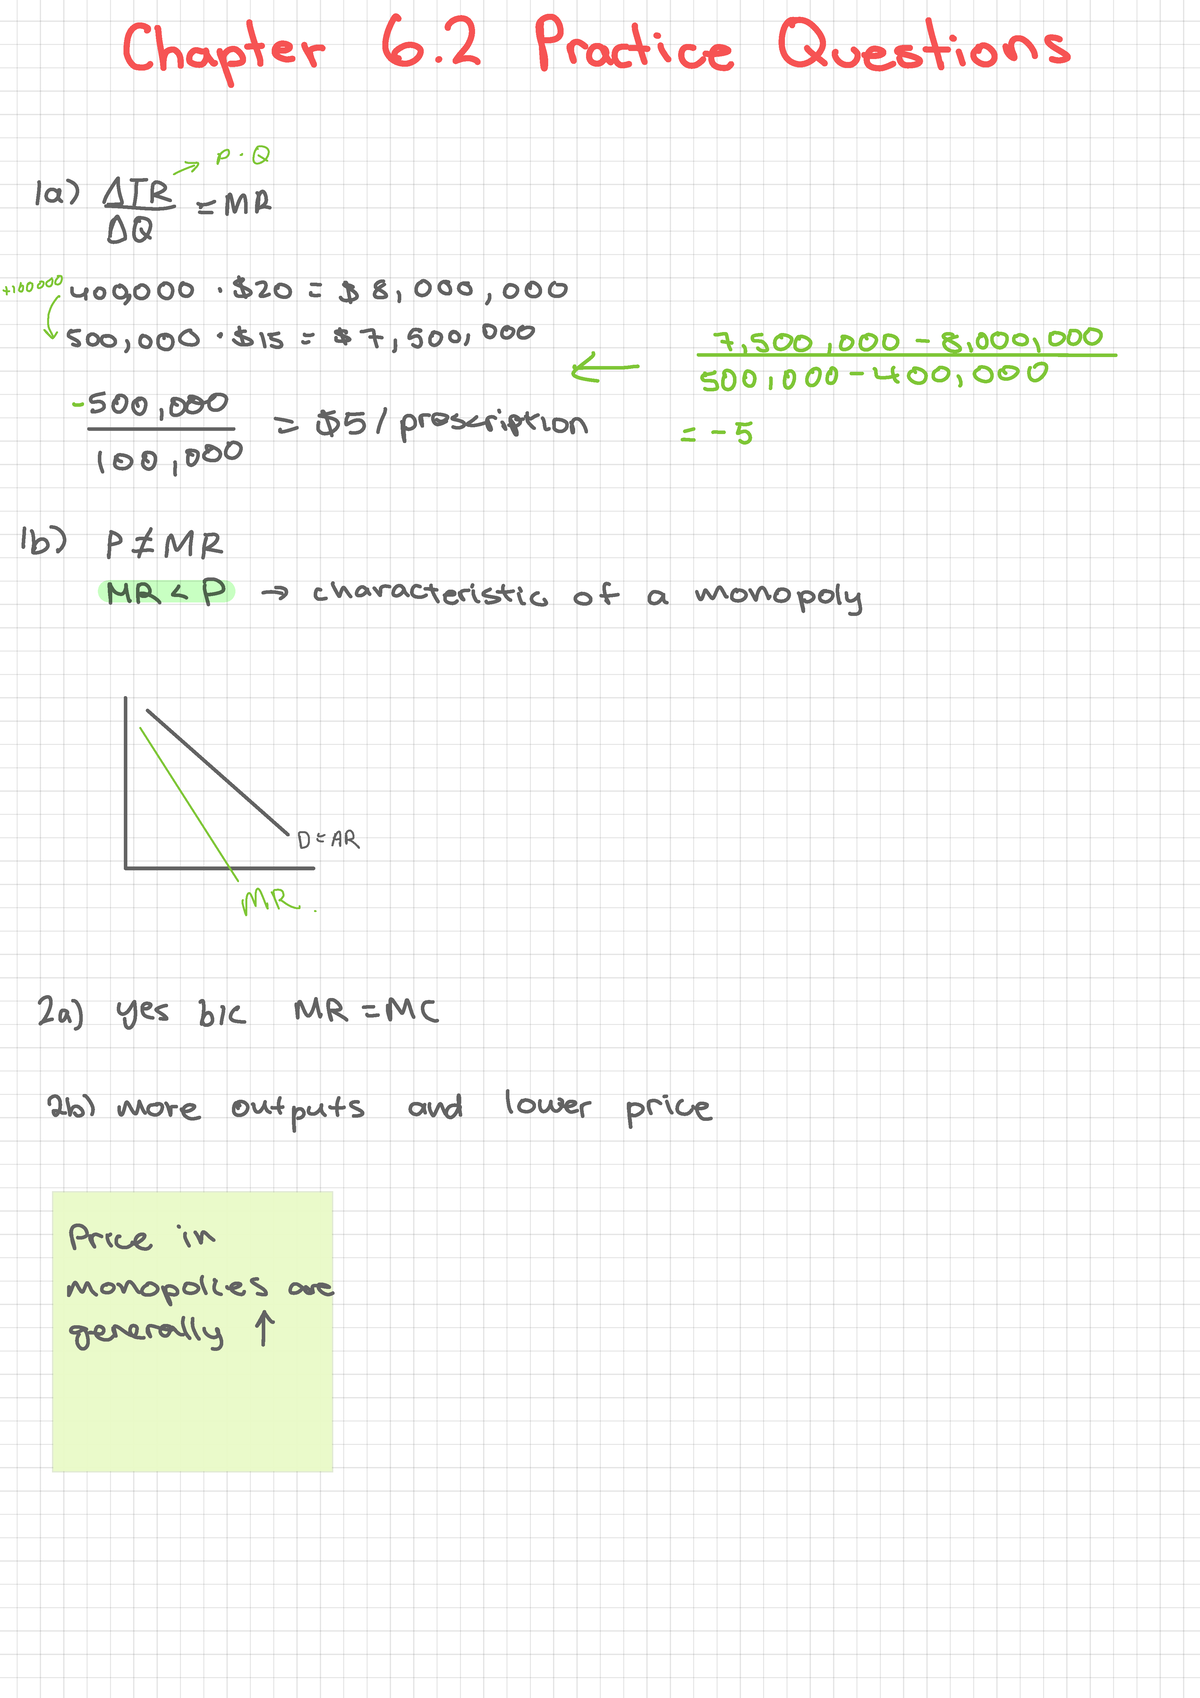 Chapter 6.2 Practice Questions
→ P · Q
1a) ΔTR
ΔQ
= MR
+100000
400,000 · $20 = $8,000,000
500,000 · $15 = $7,500,000
7,500,000 - 8,000,000
500,000 - 400,000
←
-500,000
100,000
= $5 / prescription
= -5
1b) P ≠ MR
MR < P → characteristic of a monopoly
D = AR
MR.
2a) yes b/c MR = MC
2b) more outputs and lower price
Price in
monopolies are
generally ↑